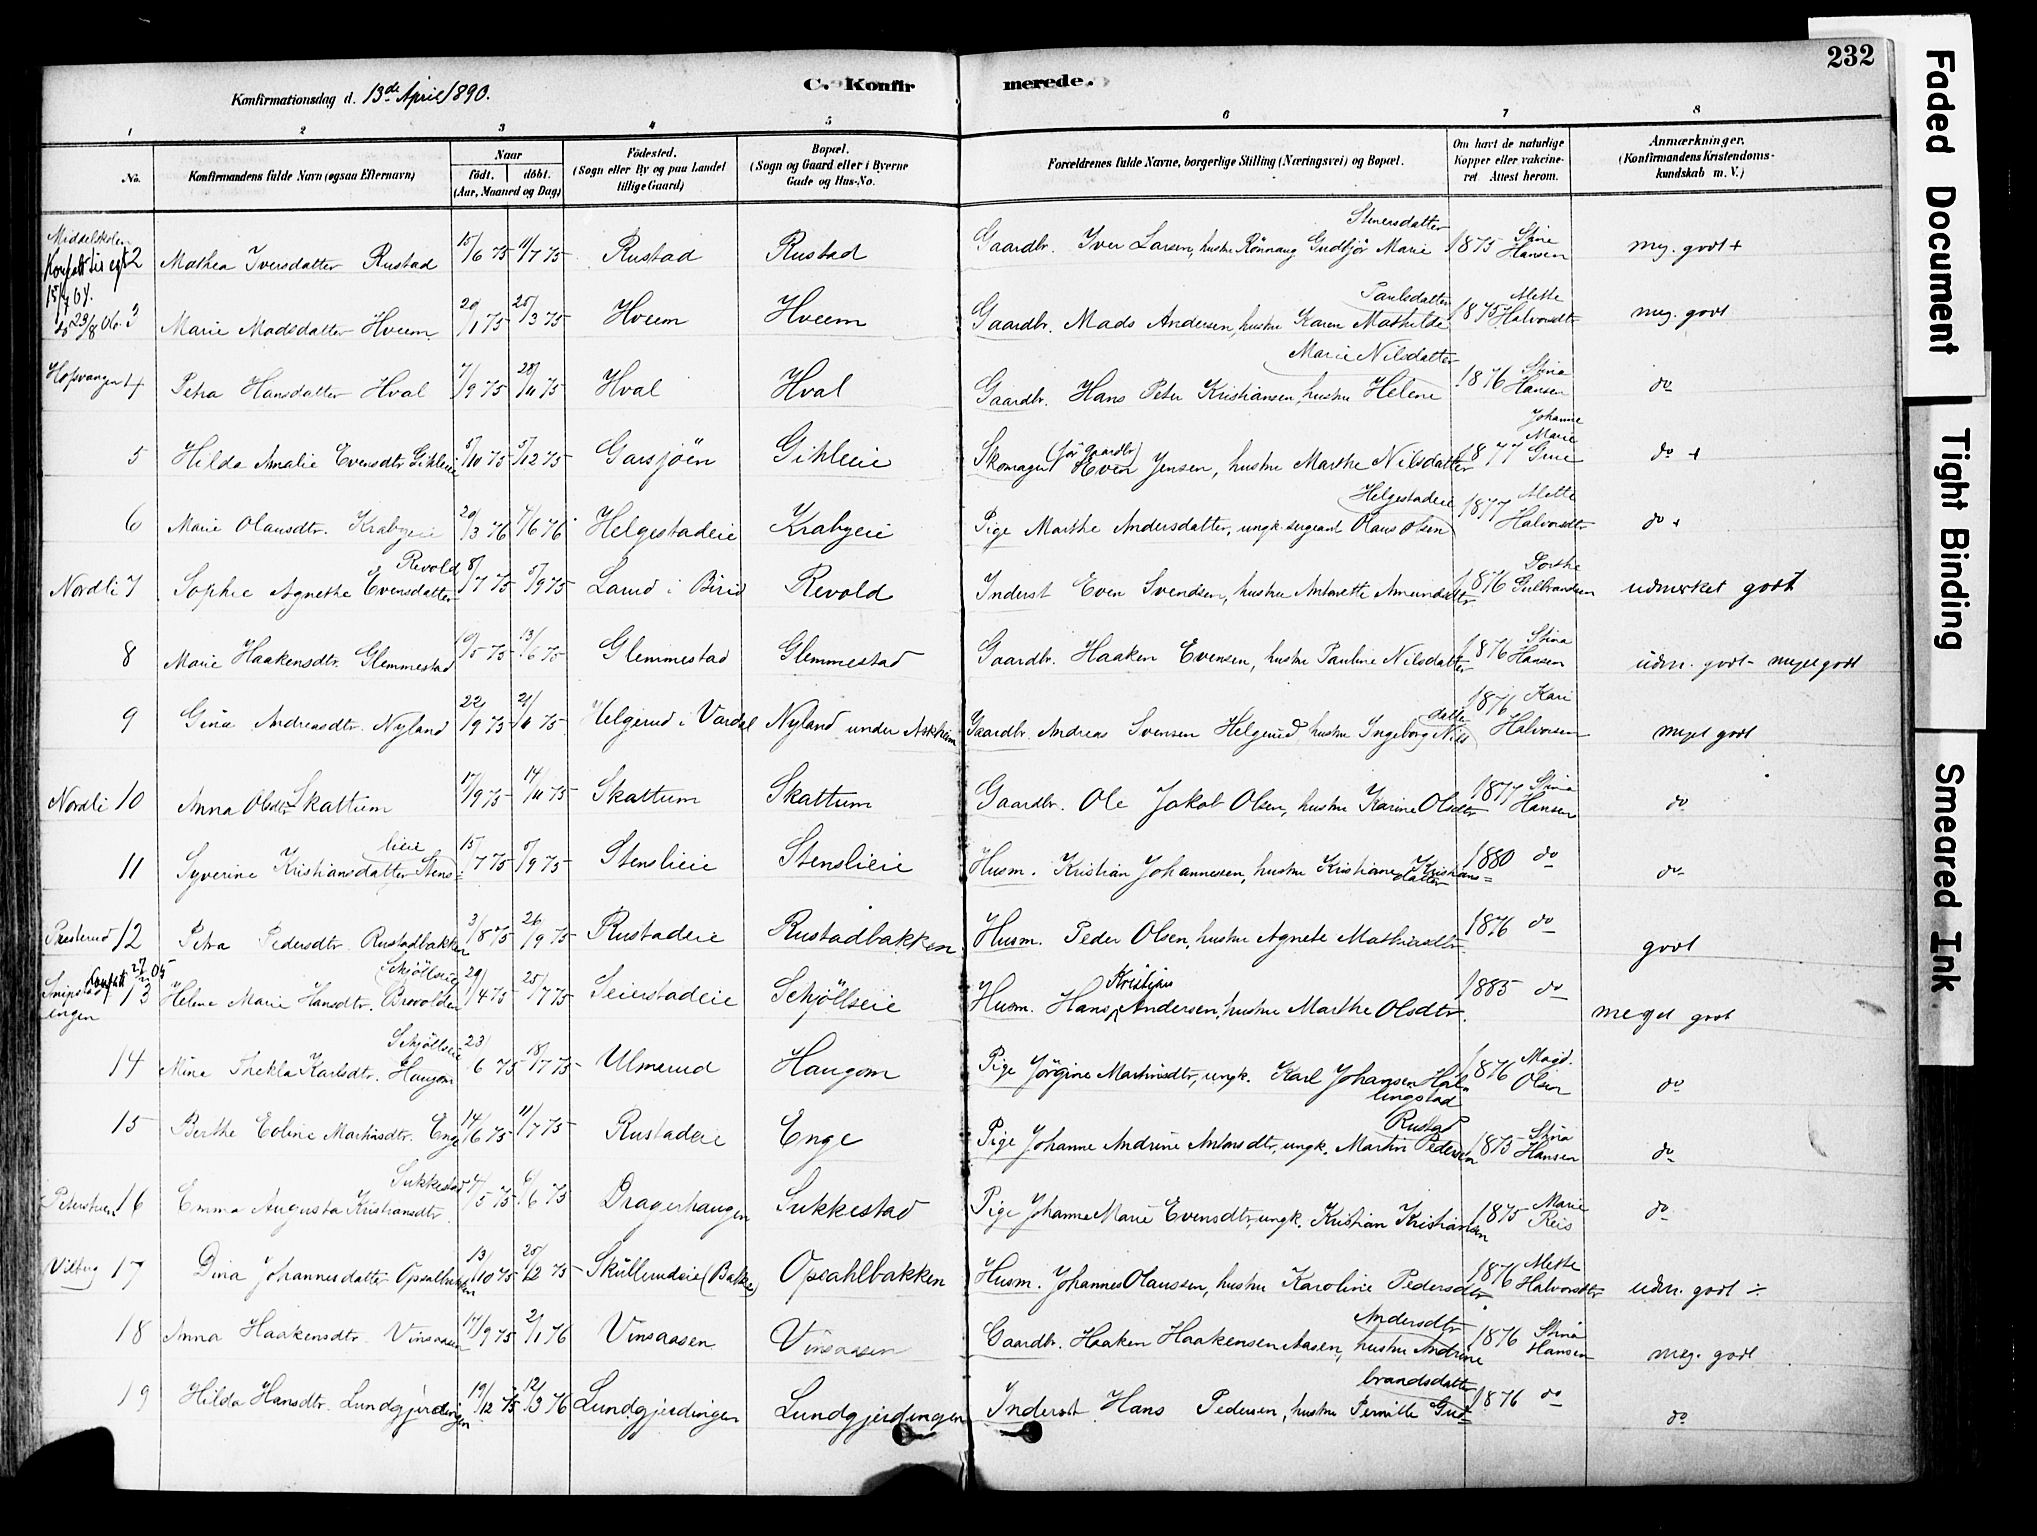 232
Faded Document
Tight Binding
Smeared Ink
Konfirmationsdag d. 13de April 1890.
C. Konfirmerede.
1 2 3 4 5 6 7 8
No.
Konfirmandens fulde Navn (ogsaa Efternavn)
Naar
født. døbt.
(Aar, Maaned og Dag)
Fødested.
(Sogn eller By og paa Landet
tillige Gaard)
Bopæl.
(Sogn og Gaard eller i Byerne
Gade og Hus-No.
Forældrenes fulde Navne, borgerlige Stilling (Næringsvei) og Bopæl.
Om havt de naturlige
Kopper eller vakcine-
ret. Attest herom.
Anmærkninger.
(Konfirmandens Kristendoms-
kundskab m. V.)
Middelskolen
2 Mathea Iversdatter Rustad 15/6 75 11/7 75 Rustad Rustad Gaardbr. Iver Larsen, hustru Rönnaug Gudbjör Marie Stenersdatter 1875 Stine Hansen meg. godt +
15/4 04.
do 23/8 06. 3 Marie Madsdatter Hveem 20/1 75 25/3 75 Hveem Hveem Gaardbr. Mads Andersen, hustru Karen Mathilde Paulsdatter 1875 Mette Halvorsdtr meg. godt
Hopvangen 4 Petra Hansdatter Hval 7/9 75 28/11 75 Hval Hval Gaardbr. Hans Peter Kristiansen, hustru Helene Marie Nilsdatter 1876 Stina Hansen do
5 Hilda Amalie Evensdtr Gihleeie 5/10 75 5/12 75 Garsjöen Gihleeie Skomager (för Gaardbr) Even Jensen, hustru Marthe Nilsdatter 1877 Johanne Marie Grue do +
6 Marie Olausdtr. Krabyeie 20/3 76 7/6 76 Helgestadeie Krabyeie Pige Marthe Andersdatter, ungk. sergeant Olaus Olsen Helgestadeie 1877 Mette Halvorsdtr do +
Nordli 7 Sophie Agnethe Evensdatter Revold 8/7 75 5/9 75 Land i Birid Revold Inderst Even Svendsen, hustru Antonette Amundsdatter 1876 Dorthe Gulbrandsen udmerket godt
8 Marie Haakensdtr. Glemmestad 10/5 75 13/6 75 Glemmestad Glemmestad Gaardbr. Haaken Evensen, hustru Pauline Nilsdatter 1876 Stina Hansen udm. godt - meget godt
9 Gina Andreasdtr. Nyland 22/9 75 21/11 75 Helgerud i Vardal Nyland under Askheim Gaardbr. Andreas Svensen Helgerud, hustru Ingeborg Nilsdatter 1876 Kari Halvorsen meget godt
Nordli 10 Anna Olsdtr Skattum 17/9 75 14/11 75 Skattum Skattum Gaardbr. Ole Jakob Olsen, hustru Karine Olsdtr 1877 Stina Hansen do
11 Syverine Kristiansdatter Stenslieie 15/7 75 5/9 75 Stenslieie Stenslieie Husm. Kristian Johannesen, hustru Kristiane Kristiansdatter 1880 do do
Presterud 12 Petra Pedersdtr. Rustadbakken 3/8 75 26/9 75 Rustadeie Rustadbakken Husm. Peder Olsen, hustru Agnete Mathiasdtr 1876 do godt
13 Helene Marie Hansdtr. Brevolden Schjöllseie 29/4 75 25/7 75 Seierstadeie Schjöllseie Husm. Hans Kristian Andersen, hustru Marthe Olsdtr. 1885 do meget godt
14 Mina Thekla Karlsdtr. Haugom Schjöllseie 23/6 75 18/7 75 Ulmerud Haugom Pige Jörgine Martinsdtr, ungk. Karl Johansen Hallingstad 1876 Magd. Olsen do
15 Berthe Eoline Martinsdtr. Enge 14/6 75 11/7 75 Rustadeie Enge Pige Johanne Andrine Antonsdtr, ungk. Martin Pedersen Rustad 1875 Stina Hansen do
16 Emma Augusta Kristiansdtr Sukkestad 4/5 75 6/6 75 Dragerhaugen Sukkestad Pige Johanne Marie Evensdtr, ungk. Kristian Kristiansen 1875 Marie Reis do
Vilberg 17 Dina Johannesdatter Opsalbakken 13/10 75 25/12 75 Skullerudeie (Bakke) Opsahlbakken Husm. Johannes Olaussen, hustru Karoline Pedersdtr 1876 Mette Halvorsdtr udm. godt ÷
18 Anna Haakensdtr. Vinsaasen 17/9 75 2/1 76 Vinsaasen Vinsaasen Gaardbr. Haaken Haakensen Aasen, hustru Andrine Andersdtr 1876 Stina Hansen meg. godt
19 Hilda Hansdtr. Lundgjerdingen 19/12 75 12/3 76 Lundgjerdingen Lundgjerdingen Inderst Hans Pedersen, hustru Pernille Gudbrandsdatter 1876 do do